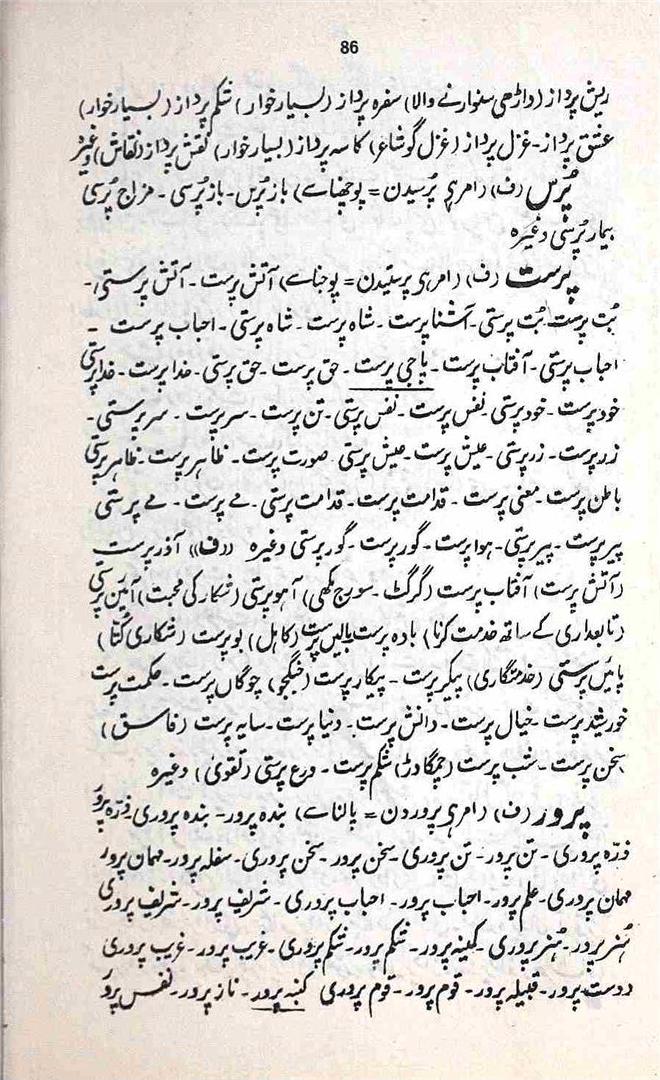 86
ریش پرداز (داڑھی سنوارنے والا) سفرہ پرداز (بسیار خوار) شکم پرداز (بسیار خوار)
عشق پرداز۔ غزل پرداز (غزل گو شاعر) کاسہ پرداز (بسیار خوار) نقش پرداز (نقاش) وغیرہ
پُرس (ف) (امر ہے پُرسیدن = پوچھنا سے) باز پُرس۔ باز پُرسی۔ مزاج پُرسی
بیمار پُرسی وغیرہ
پرست (ف) (امر ہے پرستیدن = پوجنا سے) آتش پرست۔ آتش پرستی۔
بُت پرست۔ بُت پرستی۔ آشنا پرست۔ شاہ پرست۔ شاہ پرستی۔ احباب پرست۔
احباب پرستی۔ آفتاب پرست۔ پاجی پرست۔ حق پرست۔ حق پرستی۔ خدا پرست۔ خدا پرستی
خود پرست۔ خود پرستی۔ نفس پرست۔ نفس پرستی۔ تن پرست۔ سر پرست۔ سر پرستی۔
زر پرست۔ زر پرستی۔ عیش پرست۔ عیش پرستی۔ صورت پرست۔ ظاہر پرست۔ ظاہر پرستی
باطن پرست۔ معنی پرست۔ قدامت پرست۔ قدامت پرستی۔ مے پرست۔ مے پرستی
پیر پرست۔ پیر پرستی۔ ہوا پرست۔ گور پرست۔ گور پرستی وغیرہ ((ف)) آذر پرست
(آتش پرست) آفتاب پرست (گرگٹ۔ سورج مکھی) آہو پرستی (شکار کی محبت) آئین پرستی
(تابعداری کے ساتھ خدمت کرنا) بادہ پرست بالیں پرست (کاہل) بو پرست (شکاری کُتّا)
پائیں پرستی (خدمتگاری) پیکر پرست۔ پیکار پرست (جنگجو) چوگاں پرست۔ حکمت پرست
خورشید پرست۔ خیال پرست۔ دانش پرست۔ دنیا پرست۔ سایہ پرست (فاسق)
سخن پرست۔ شب پرست (چمگادڑ) شکم پرست۔ ورع پرستی (تقویٰ) وغیرہ
پرور (ف) (امر ہے پروردن = پالنا سے) بندہ پرور۔ بندہ پروری۔ ذرّہ پرور
ذرّہ پروری۔ تن پرور۔ تن پروری۔ سخن پرور۔ سخن پروری۔ سفلہ پرور۔ مہمان پرور
مہمان پروری۔ علم پرور۔ احباب پرور۔ احباب پروری۔ شریف پرور۔ شریف پروری
ہُنر پرور۔ ہُنر پروری۔ کمینہ پرور۔ شکم پرور۔ شکم پروری۔ غریب پرور۔ غریب پروری
دوست پرور۔ قبیلہ پرور۔ قوم پرور۔ قوم پروری کنبہ پرور۔ ناز پرور۔ نفس پرور